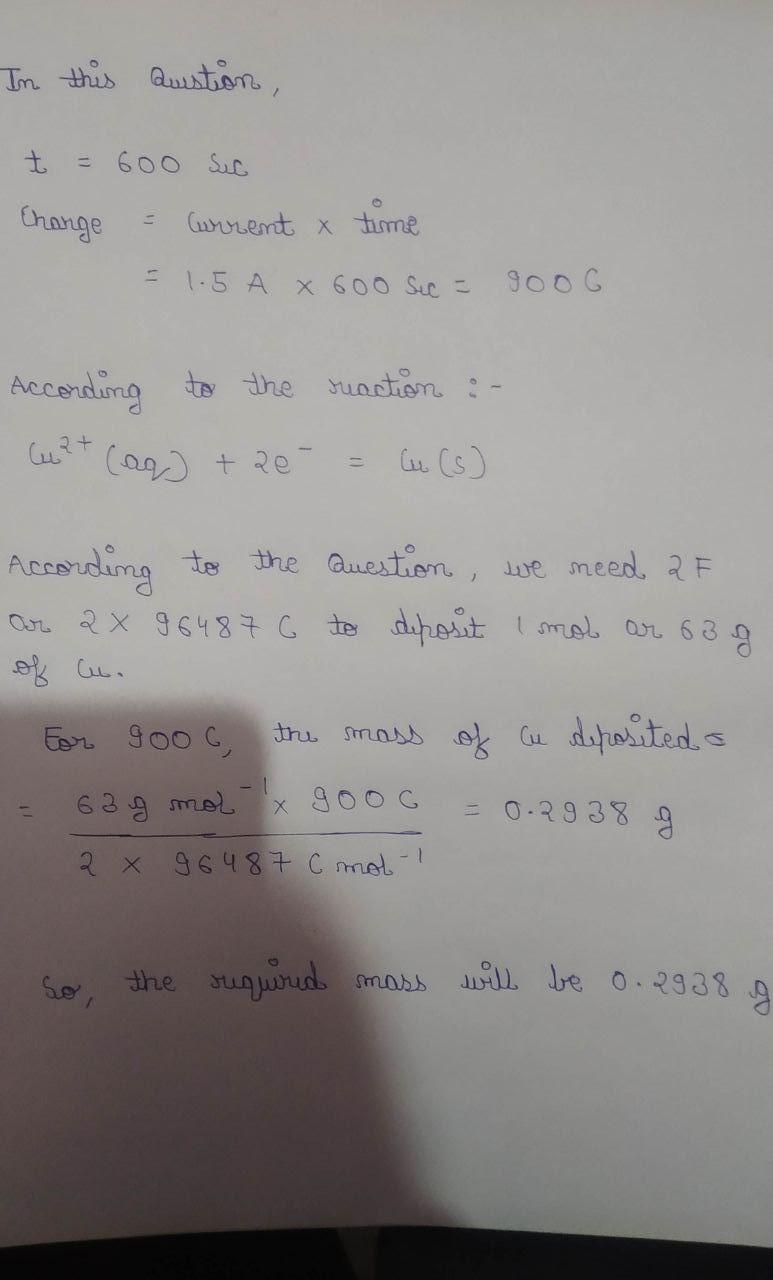 In this Question,
t = 600 Sec
Charge = Current × time
= 1.5 A × 600 Sec = 900 C
According to the reaction :-
Cu²⁺ (aq) + 2e⁻ = Cu (s)
According to the Question, we need 2 F
or 2 × 96487 C to deposit 1 mol or 63 g
of Cu.
For 900 C, the mass of Cu deposited =
= 63 g mol⁻¹ × 900 C / 2 × 96487 C mol⁻¹ = 0.2938 g
So, the required mass will be 0.2938 g